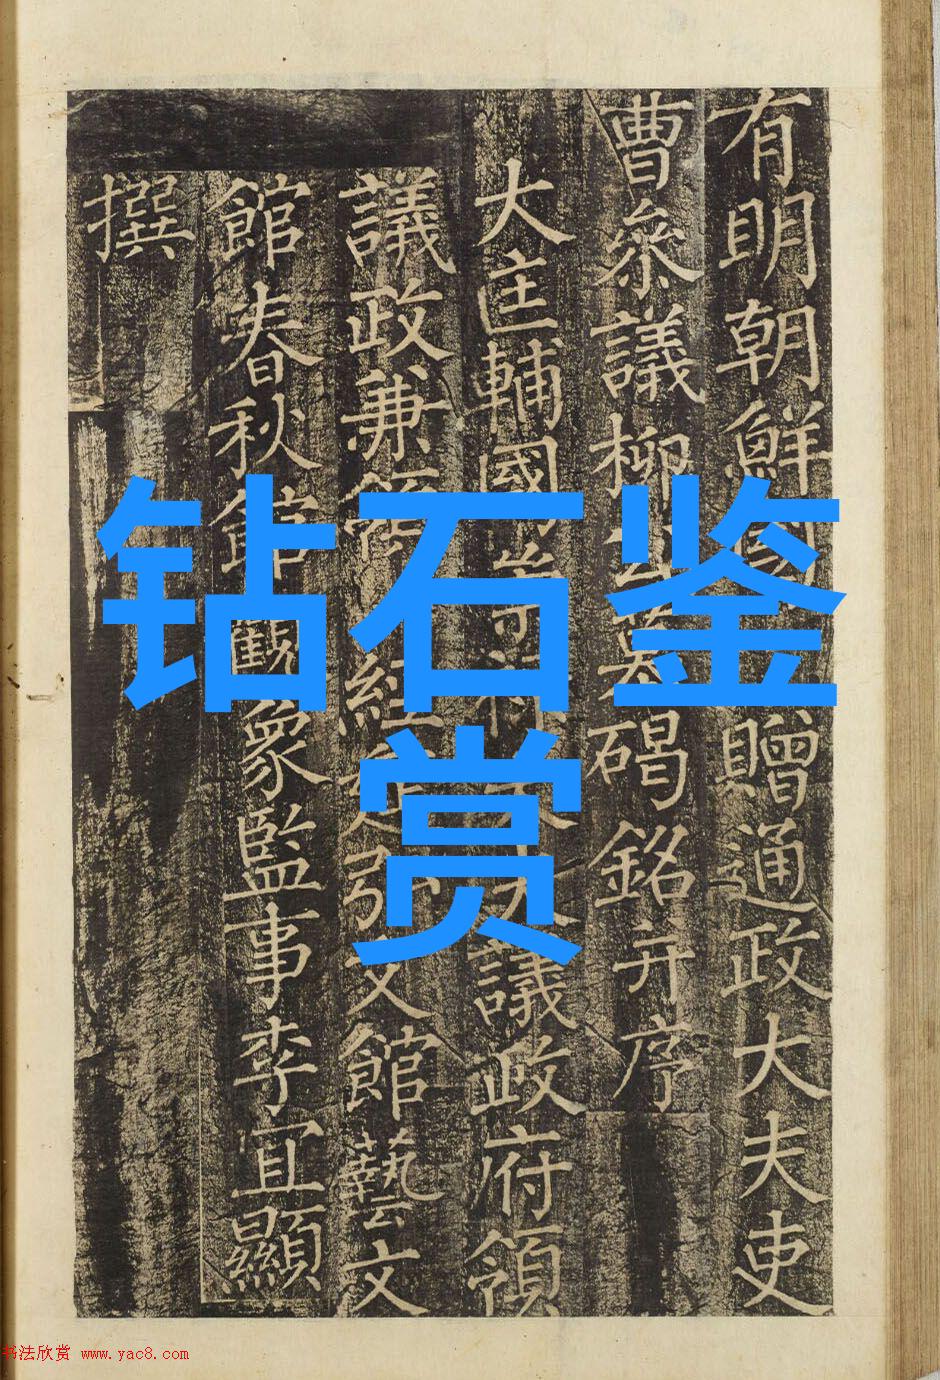 有明朝鮮國贈通政大夫吏
曹叅議柳公墓碣銘并序
大匡輔國崇祿大夫議政府領
議政兼領經筵弘文館藝文
館春秋館觀象監事李宜顯
撰
钻石鉴
赏
书法欣赏 www.yac8.com